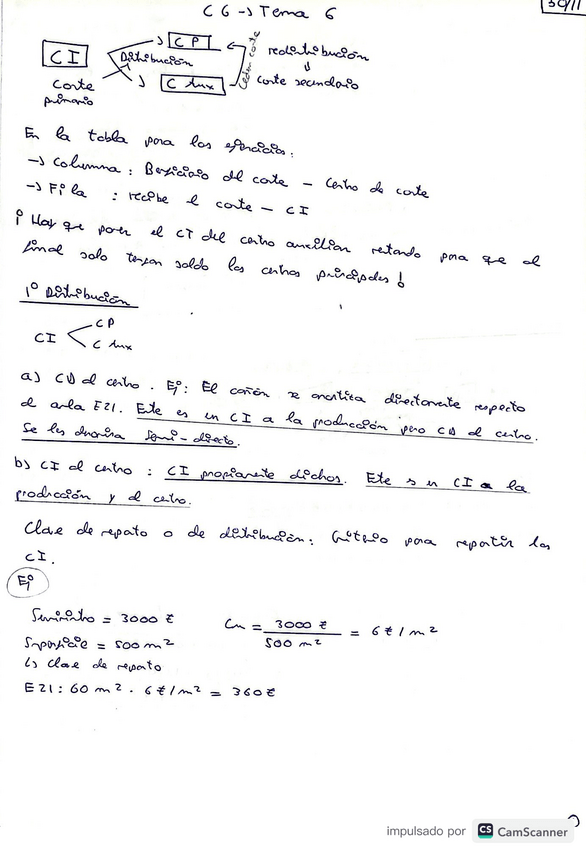 CG → Tema 6
30/11
CI
Coste primario
Distribución
CP
C Aux
Ceder coste
redistribución
coste secundario
En la tabla para los ejercicios:
→ Columna: Beneficiario del coste - Centro de coste
→ Fila : recibe el coste - CI
¡ Hay que poner el CT del centro auxiliar restando para que al
final solo tengan saldo los centros principales !
1º Distribución
CI
CP
C Aux
a) CD al centro. Ej: El cañón se amortiza directamente respecto
al aula E21. Este es un CI a la producción pero CD al centro.
Se les denomina Semi-directo.
b) CI al centro : CI propiamente dichos. Este es un CI a la
producción y al centro.
Clave de reparto o de distribución: Criterio para repartir los
CI.
Ej
Suministro = 3000 €
Superficie = 500 m²
↳ Clave de reparto
Cu = 3000 € / 500 m² = 6€/m²
E21: 60 m² · 6€/m² = 360€
impulsado por CS CamScanner